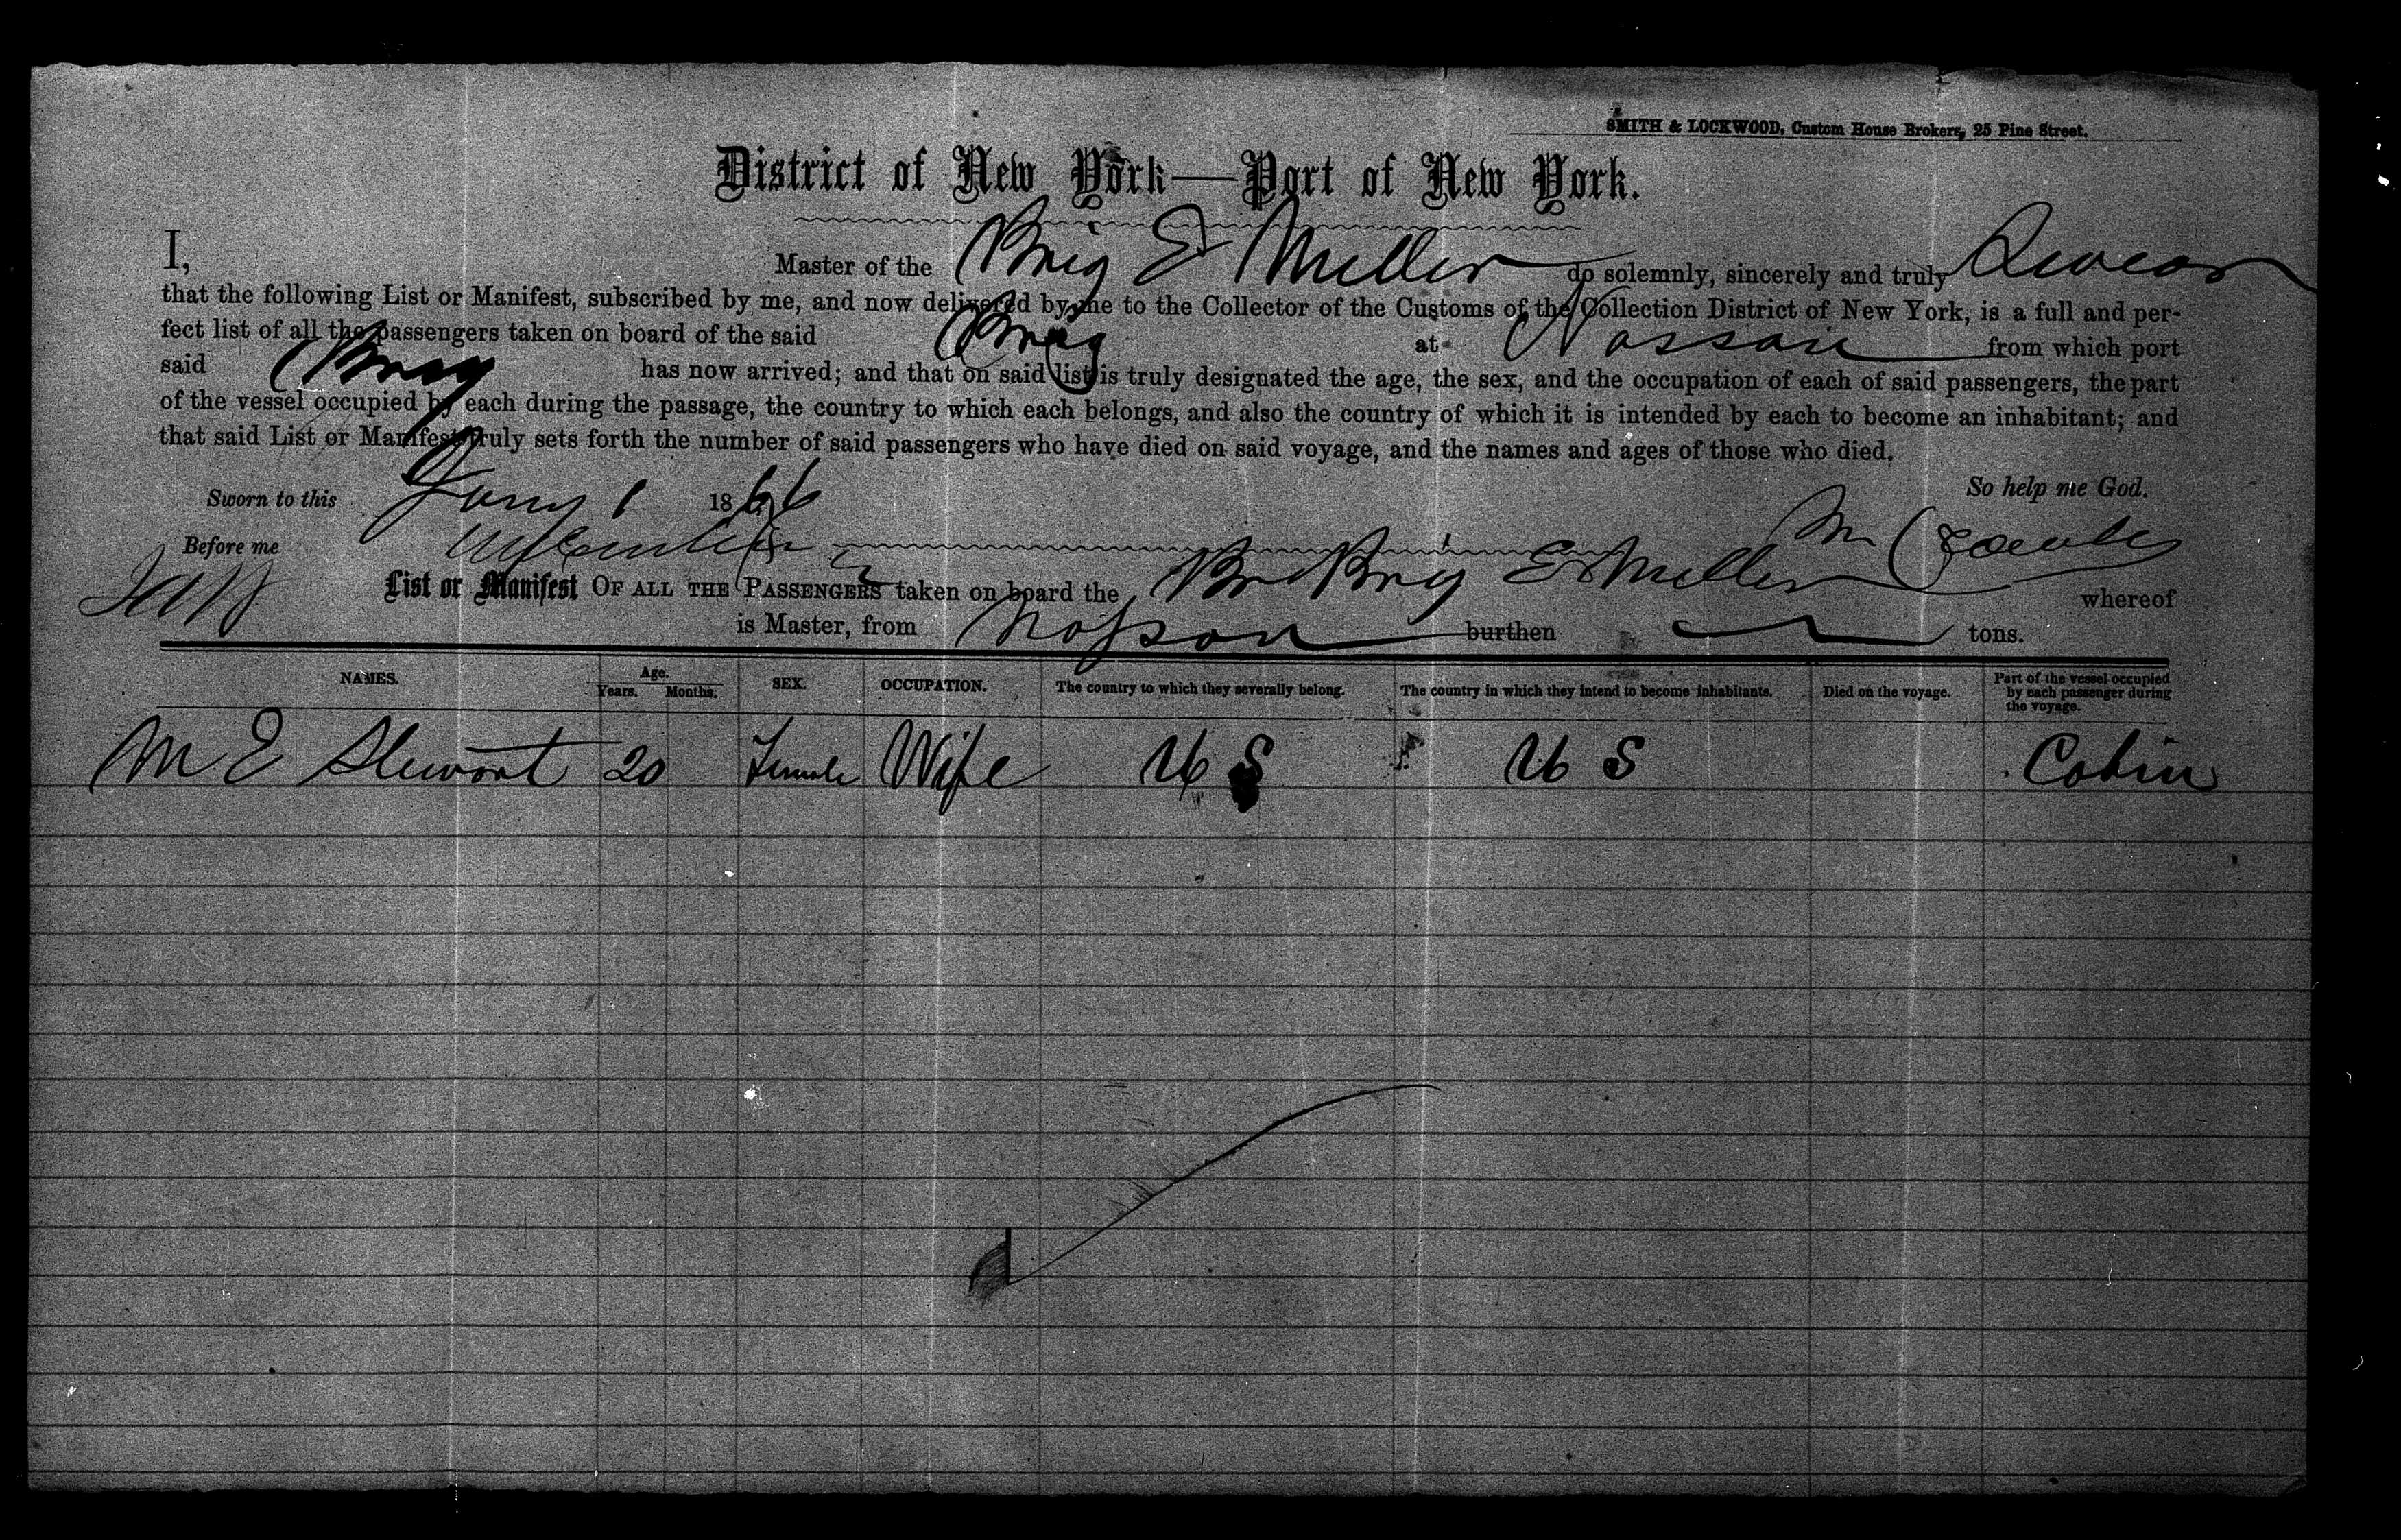 SMITH & LOCKWOOD, Custom House Brokers, 25 Pine Street.
District of New York—Port of New York.
I, Master of the Brig E Miller do solemnly, sincerely and truly Swear
that the following List or Manifest, subscribed by me, and now delivered by me to the Collector of the Customs of the Collection District of New York, is a full and per-
fect list of all the passengers taken on board of the said Brig at Nassau from which port
said Brig has now arrived; and that on said list is truly designated the age, the sex, and the occupation of each of said passengers, the part
of the vessel occupied by each during the passage, the country to which each belongs, and also the country of which it is intended by each to become an inhabitant; and
that said List or Manifest truly sets forth the number of said passengers who have died on said voyage, and the names and ages of those who died.
So help me God.
Sworn to this Jany 1 1866
Before me
List or Manifest OF ALL THE PASSENGERS taken on board the Br Brig E Miller whereof
is Master, from Nassau burthen tons.
NAMES. Age. Years. Months. SEX. OCCUPATION. The country to which they severally belong. The country in which they intend to become inhabitants. Died on the voyage. Part of the vessel occupied by each passenger during the voyage.
M E Stewart 20 Female Wife U S U S Cabin